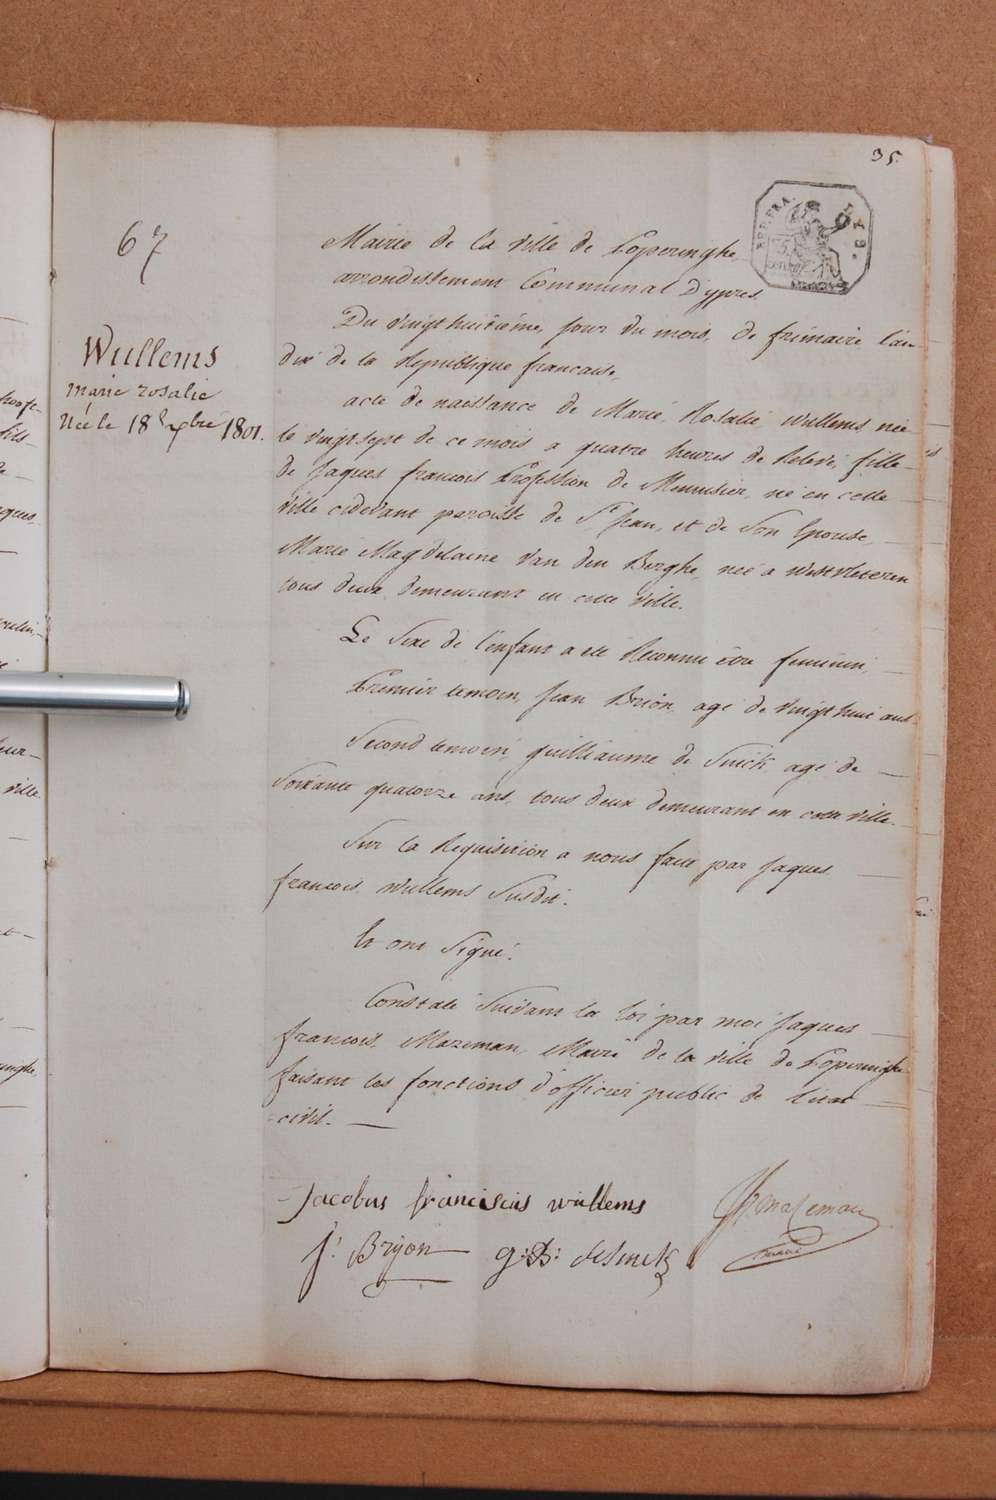 35.
67
REP. FRA.
75
centimes
Mairie de la ville de Poperinghe,
arrondissement Communal D'ypres.
Du vingt huitiéme, jour du mois, de frimaire l'an
dix de la Republique francaise,
Wullems
marie rosalie
Née le 18 Xbre 1801.
acte de naissance de Marie, Rosalie, wullems, née
le vingt sept de ce mois a quatre heures de Relevé, fille
de Jaques francois Profession de Menuisier, né en cette
ville cidevant paroisse de St. Jean, et de Son Epouse,
Marie Magdelaine Van den Berghe, née a westvleteren
tous deux demeurant en cette ville.
Le Sexe de l'enfant a eté Reconnu être feminin,
Premier temoin, Jean Brion, agé de vingt huit ans
Second temoin, guilliaume de Smick, agé de
Soixante quatorze ans, tous deux demeurant en cette ville.
Sur la Requisition a nous faite par Jaques
francois wullems Susdit.
Et ont Signé.
Constaté Suivant la loi par moi Jaques
francois Mazeman, Maire de la ville de Poperinghe
faisant les fonctions d'officier public de l'état
civil.
Jacobus franciscus wullems
J: Bryon g: B: desmick
Mazeman
maire